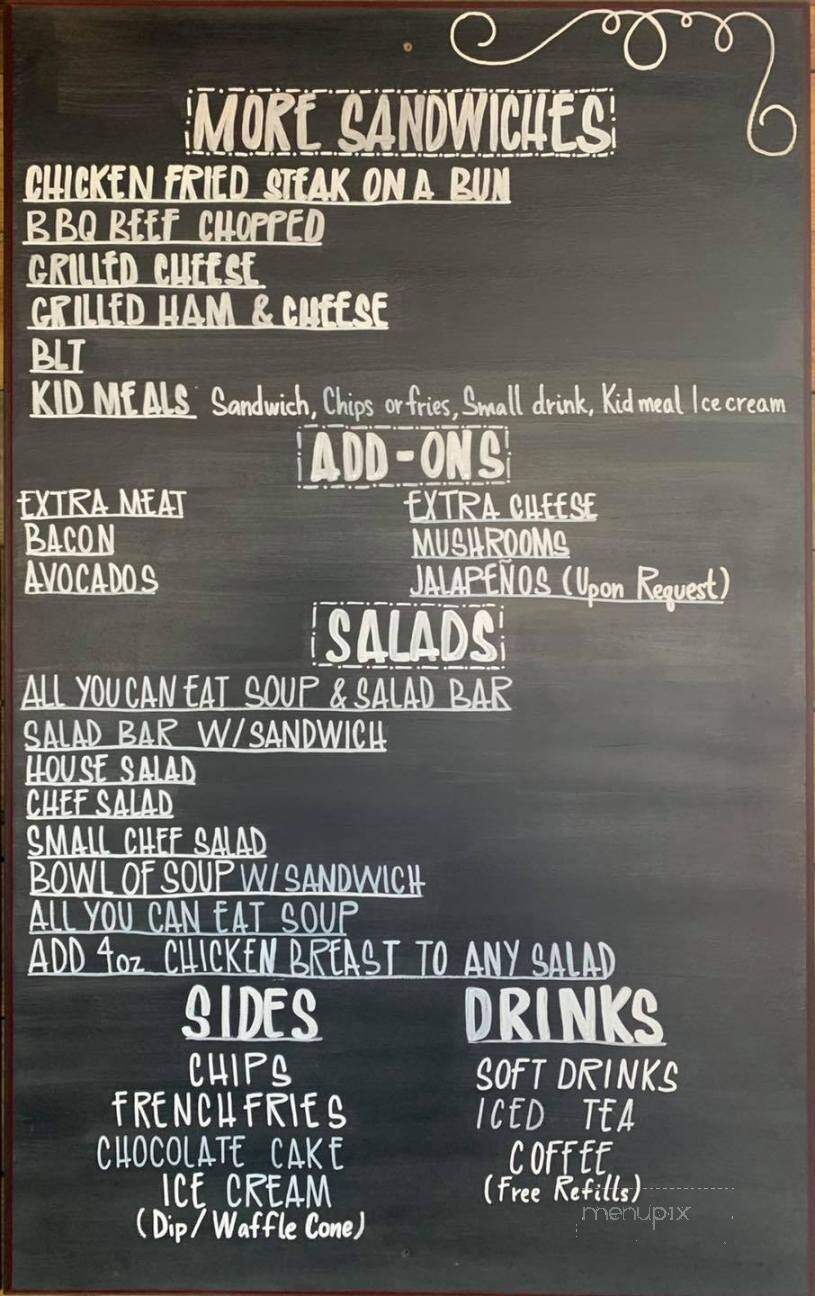 MORE SANDWICHES
CHICKEN FRIED STEAK ON A BUN
BBQ BEEF CHOPPED
GRILLED CHEESE
GRILLED HAM & CHEESE
BLT
KID MEALS Sandwich, Chips or fries, Small drink, Kid meal Ice cream
ADD-ONS
EXTRA MEAT EXTRA CHEESE
BACON MUSHROOMS
AVOCADOS JALAPEÑOS (Upon Request)
SALADS
ALL YOU CAN EAT SOUP & SALAD BAR
SALAD BAR W/SANDWICH
HOUSE SALAD
CHEF SALAD
SMALL CHEF SALAD
BOWL OF SOUP W/SANDWICH
ALL YOU CAN EAT SOUP
ADD 4oz CHICKEN BREAST TO ANY SALAD
SIDES
CHIPS
FRENCH FRIES
CHOCOLATE CAKE
ICE CREAM
(Dip/Waffle Cone)
DRINKS
SOFT DRINKS
ICED TEA
COFFEE
(Free Refills)
menupix